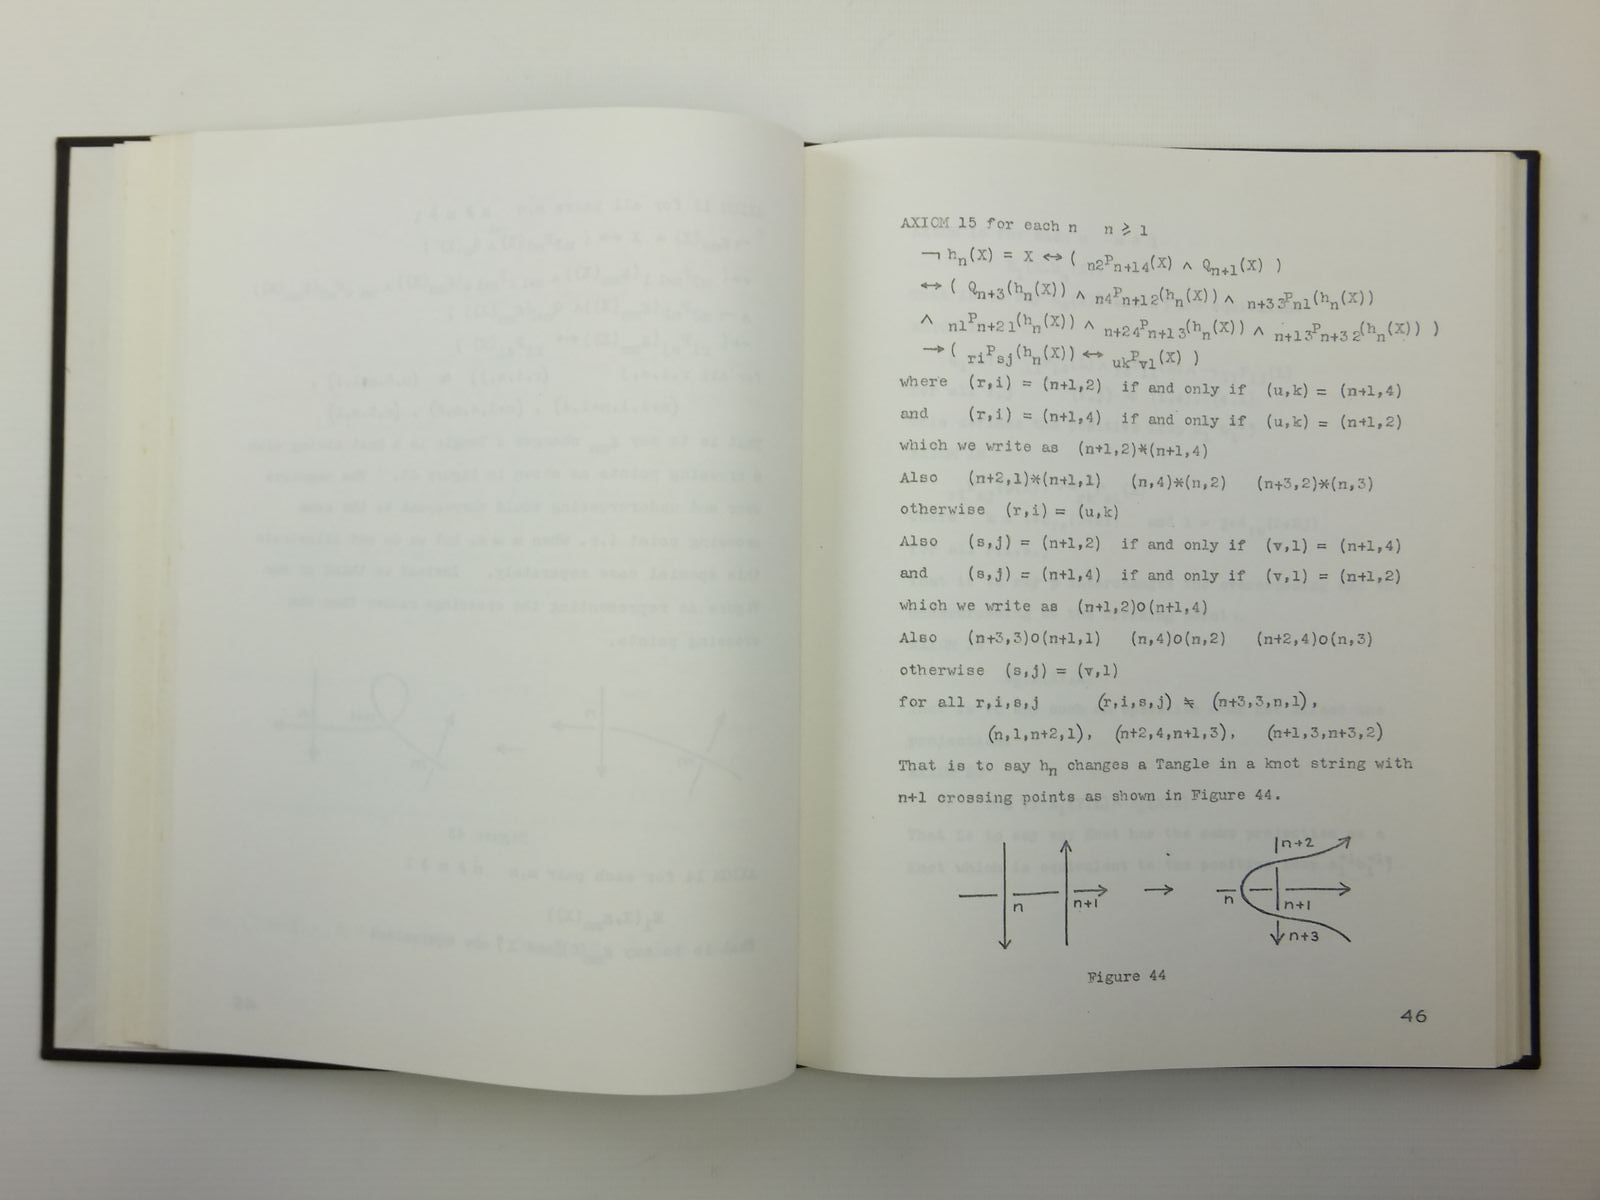 AXIOM 15 for each n n ⩾ 1
¬ hn(X) = X ↔ ( n2Pn+14(X) ∧ Qn+1(X) )
↔ ( Qn+3(hn(X)) ∧ n4Pn+12(hn(X)) ∧ n+33Pn1(hn(X))
∧ n1Pn+21(hn(X)) ∧ n+24Pn+13(hn(X)) ∧ n+13Pn+32(hn(X)) )
→ ( riPsj(hn(X)) ↔ ukPvl(X) )
where (r,i) = (n+1,2) if and only if (u,k) = (n+1,4)
and (r,i) = (n+1,4) if and only if (u,k) = (n+1,2)
which we write as (n+1,2)*(n+1,4)
Also (n+2,1)*(n+1,1) (n,4)*(n,2) (n+3,2)*(n,3)
otherwise (r,i) = (u,k)
Also (s,j) = (n+1,2) if and only if (v,l) = (n+1,4)
and (s,j) = (n+1,4) if and only if (v,l) = (n+1,2)
which we write as (n+1,2)o(n+1,4)
Also (n+3,3)o(n+1,1) (n,4)o(n,2) (n+2,4)o(n,3)
otherwise (s,j) = (v,l)
for all r,i,s,j (r,i,s,j) ≠ (n+3,3,n,1),
(n,1,n+2,1), (n+2,4,n+1,3), (n+1,3,n+3,2)
That is to say hn changes a Tangle in a knot string with
n+1 crossing points as shown in Figure 44.
n n+1 → n n+2 n+1 n+3
Figure 44
46